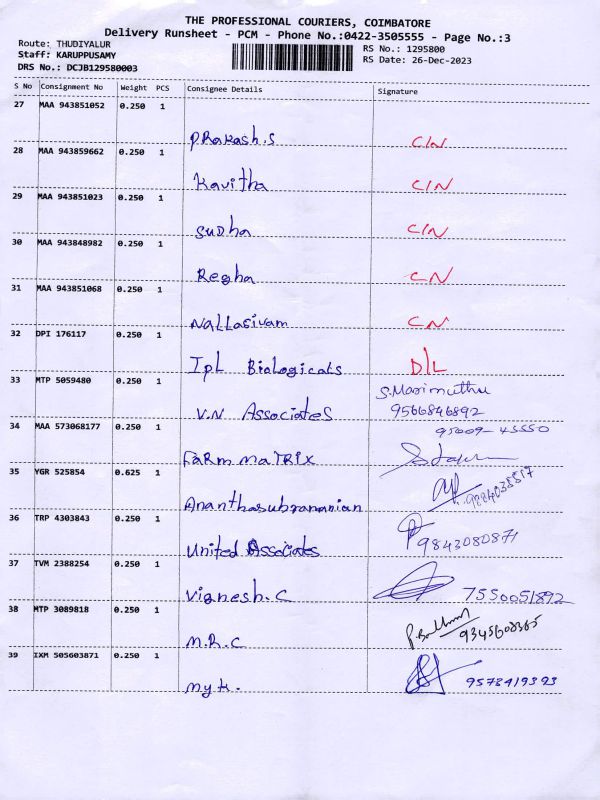 THE PROFESSIONAL COURIERS, COIMBATORE
Delivery Runsheet - PCM - Phone No.:0422-3505555 - Page No.:3
Route: THUDIYALUR
Staff: KARUPPUSAMY
DRS No.: DCJB129580003
RS No.: 1295800
RS Date: 26-Dec-2023
S No Consignment No Weight PCS Consignee Details Signature
27 MAA 943851052 0.250 1
PRakash.S C/N
28 MAA 943859662 0.250 1
Kavitha C/N
29 MAA 943851023 0.250 1
SUDha C/N
30 MAA 943848982 0.250 1
Regha CN
31 MAA 943851068 0.250 1
Nallasivam CN
32 DPI 176117 0.250 1
IpL Biologicals D/L
33 MTP 5059480 0.250 1 S.Marimuthu
V.N Associates 9566846892
34 MAA 573068177 0.250 1 95009-45550
FaRm maTRIX
35 YGR 525854 0.625 1
Ananthasubramanian
36 TRP 4303843 0.250 1
United Associates 9843080871
37 TVM 2388254 0.250 1
Vignesh.C 7550051892
38 MTP 3089818 0.250 1
M.R.C
39 IXM 505603871 0.250 1
myk. 9578419393